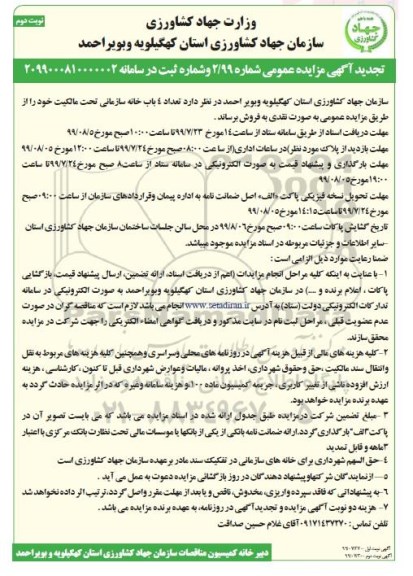 نوبت دوم
وزارت جهاد کشاورزی
سازمان جهاد کشاورزی استان کهگیلویه وبویراحمد
تجدید آگهی مزایده عمومی شماره ۲/۹۹ وشماره ثبت در سامانه ۲۰۹۹۰۰۰۸۱۰۰۰۰۰۰۲
سازمان جهاد کشاورزی استان کهگیلویه وبویر احمد در نظر دارد تعداد ٤ باب خانه سازمانی تحت مالکیت خود را از
طریق مزایده عمومی به صورت نقدی به فروش برساند .
مهلت دریافت اسناد از طریق سامانه ستاد از ساعت۱۴مورخ ۹۹/۷/۲۳ تا ساعت۱۰:۰۰صبح مورخ۹۹/۰۸/۰۵
مهلت بازدید از پلاک مورد نظر(در ساعات اداری)از ساعت ۰۸:۰۰صبح مورخ۹۹/۷/۲۴تا ساعت ۱۲:۰۰مورخ ۹۹/۰۸/۰۵
مهلت بارگذاری و پیشنهاد قیمت به صورت الکترونیکی در سامانه ستاد از ساعت۸ صبح مورخ۹۹/۷/۲۴تا ساعت
۱۹:۰۰مورخ ۹۹/۰۸/۰۵
مهلت تحویل نسخه فیزیکی پاکت «الف» اصل ضمانت نامه به اداره پیمان وقراردادهای سازمان از ساعت ۰۹:۰۰صبح
مورخ۹۹/۷/۲۴تا ساعت۱۴:۱۵مورخ ۹۹/۰۸/۰۵
تاریخ گشایش پاکات ساعت ۰۹:۰۰صبح مورخ۹۹/۸/۰۶ در محل سالن جلسات ساختمان سازمان جهاد کشاورزی استان
-سایر اطلاعات و جزئیات مربوطه در اسناد مزایده موجود میباشد.
ضمنا رعایت موارد ذیل الزامی است :
۱-با عنایت به اینکه کلیه مراحل انجام مزایدات (اعم از دریافت اسناد، ارائه تضمین، ارسال پیشنهاد قیمت، بازگشایی
پاکات ، اعلام برنده و ....) در سازمان جهاد کشاورزی استان کهگیلویه وبویراحمد به صورت الکترونیکی در سامانه
تدارکات الکترونیکی دولت (ستاد) به آدرس www.setadiran.ir انجام می باشد لازم است که مناقصه گران در صورت
عدم عضویت قبلی ، مراحل ثبت نام در سایت مذکور و دریافت گواهی امضاء الکتریکی را جهت شرکت در مزایده
محقق سازند.
۲-کلیه هزینه های مالی از قبیل هزینه آگهی در روزنامه های محلی وسراسری وهمچنین کلیه هزینه های مربوط به نقل
وانتقال سند مالکیت ،حق وحقوق شهرداری، اخذ پروانه ، مالیات وعوارض شهرداری قبل تا کنون ،کارشناسی ، هزینه
ارزش افزوده ناشی از تغییر کاربری ، جریمه کمیسیون ماده ۱۰۰ و هزینه سامانه وغیره که در اثر مزایده حادث گردد به
عهده برنده مزایده خواهد بود.
۳- مبلغ تضمین شرکت در مزایده طبق جدول ارائه شده در اسناد مزایده می باشد که می بایست تصویر آن در
پاکت"الف"بارگذاری گردد.ارائه ضمانت نامه بانکی از یکی از بانکها یا موسسات مالی تحت نظارت بانک مرکزی با اعتبار
۳ماهه و قابل تمدید
۴-حق السهم شهرداری برای خانه های سازمانی در تفکیک سند مادر برعهده سازمان جهاد کشاورزی است
۵- از نمایندگان شرکتهاو پیشنهاد دهندگان در روز بازگشائی مزایده دعوت به عمل می آید .
۶-به پیشنهاداتی که فاقد سپرده واریزی، مخدوش، ناقص و یا بعد از مهلت مقرر واصل گردد،ترتیب اثر داده نخواهد شد
۷- هزینه دو نوبت آگهی مزایده و تجدید آگهی در روزنامه، به عهده برنده مزایده می باشد .
تلفن تماس : ۰۹۱۷۱۴۳۷۲۷۰آقای غلام حسین صداقت
دبیر خانه کمیسیون مناقصات سازمان جهاد کشاورزی استان کهگیلویه و بویراحمد